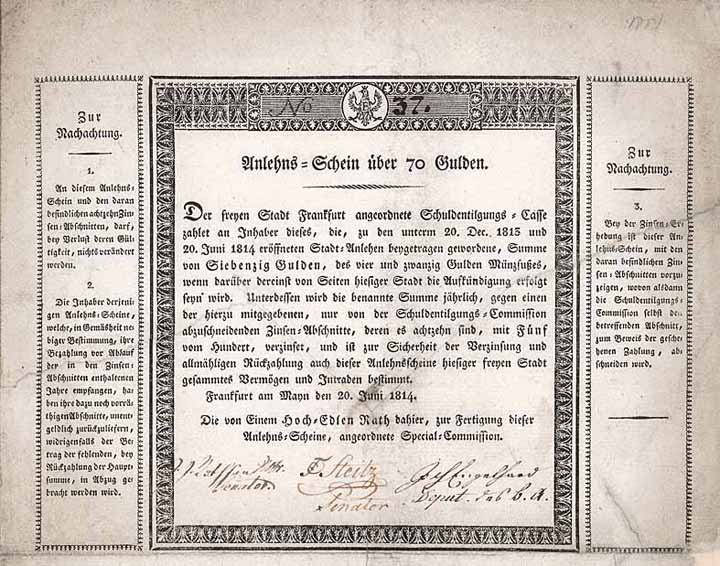 Zur
Nachachtung.
1.
An diesem Anlehns-
Schein und den daran
befindlichen achtzehn Zin-
sen-Abschnitten, darf,
bey Verlust deren Gül-
tigkeit, nichts verändert
werden.
2.
Die Inhaber derjeni-
gen Anlehns-Scheine,
welche, in Gemäsheit ne-
biger Bestimmung, ihre
Bezahlung vor Ablauf
der in den Zinsen-
Abschnitten enthaltenen
Jahre empfangen, ha-
ben ihre dazu noch vorrä-
thigen Abschnitte, unent-
geldlich zurückzuliefern,
widrigenfalls der Be-
trag der fehlenden, bey
Rückzahlung der Haupt-
summe, in Abzug ge-
bracht werden wird.
No 37.
Anlehns-Schein über 70 Gulden.
Der freyen Stadt Frankfurt angeordnete Schuldentilgungs-Casse
zahlet an Inhaber dieses, die, zu den unterm 20. Dec. 1813 und
20. Juni 1814 eröffneten Stadt-Anlehen beygetragen gewordene, Summe
von Siebenzig Gulden, des vier und zwanzig Gulden Münzfußes,
wenn darüber dereinst von Seiten hiesiger Stadt die Aufkündigung erfolgt
seyn wird. Unterdessen wird die benannte Summe jährlich, gegen einen
der hierzu mitgegebenen, nur von der Schuldentilgungs-Commission
abzuschneidenden Zinsen-Abschnitte, deren es achtzehn sind, mit Fünf
vom Hundert, verzinset, und ist zur Sicherheit der Verzinsung und
allmähligen Rückzahlung auch dieser Anlehnsscheine hiesiger freyen Stadt
gesammtes Vermögen und Intraden bestimmt.
Frankfurt am Mayn den 20. Juni 1814.
Die von Einem Hoch-Edlen Rath dahier, zur Fertigung dieser
Anlehns-Scheine, angeordnete Special-Commission.
Senator.
F. Steitz
Senator
Engelhard
Deput. des b. A.
Zur
Nachachtung.
3.
Bey der Zinsen-Er-
hebung ist dieser An-
lehns-Schein, mit den
daran befindlichen Zin-
sen-Abschnitten vorzu-
zeigen, wovon alsdann
die Schuldentilgungs-
Commission selbst den
betreffenden Abschnitt,
zum Beweis der gesche-
henen Zahlung, ab-
schneiden wird.